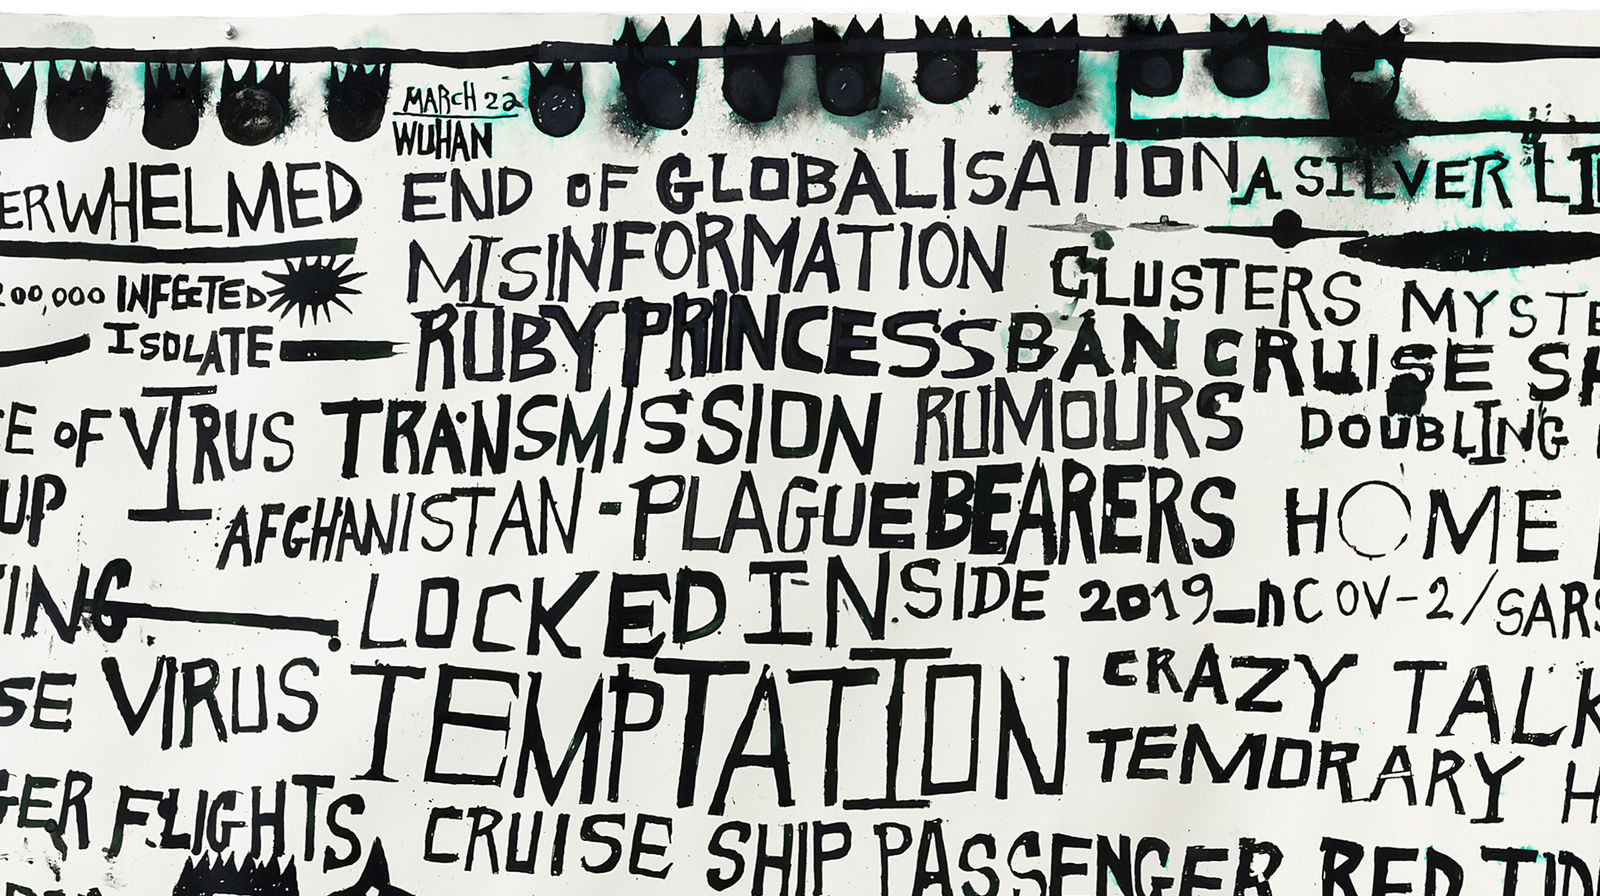 MARCH 22
WUHAN
ERWHELMED END OF GLOBALISATION A SILVER LI
200,000 INFECTED MISINFORMATION CLUSTERS MYSTE
ISOLATE RUBY PRINCESS BAN CRUISE SH
E OF VIRUS TRANSMISSION RUMOURS DOUBLING
UP AFGHANISTAN - PLAGUE BEARERS HOME
ING LOCKED INSIDE 2019_nCOV-2/SARS
SE VIRUS TEMPTATION CRAZY TALK
TEMORARY H
GER FLIGHTS CRUISE SHIP PASSENGER RED TID